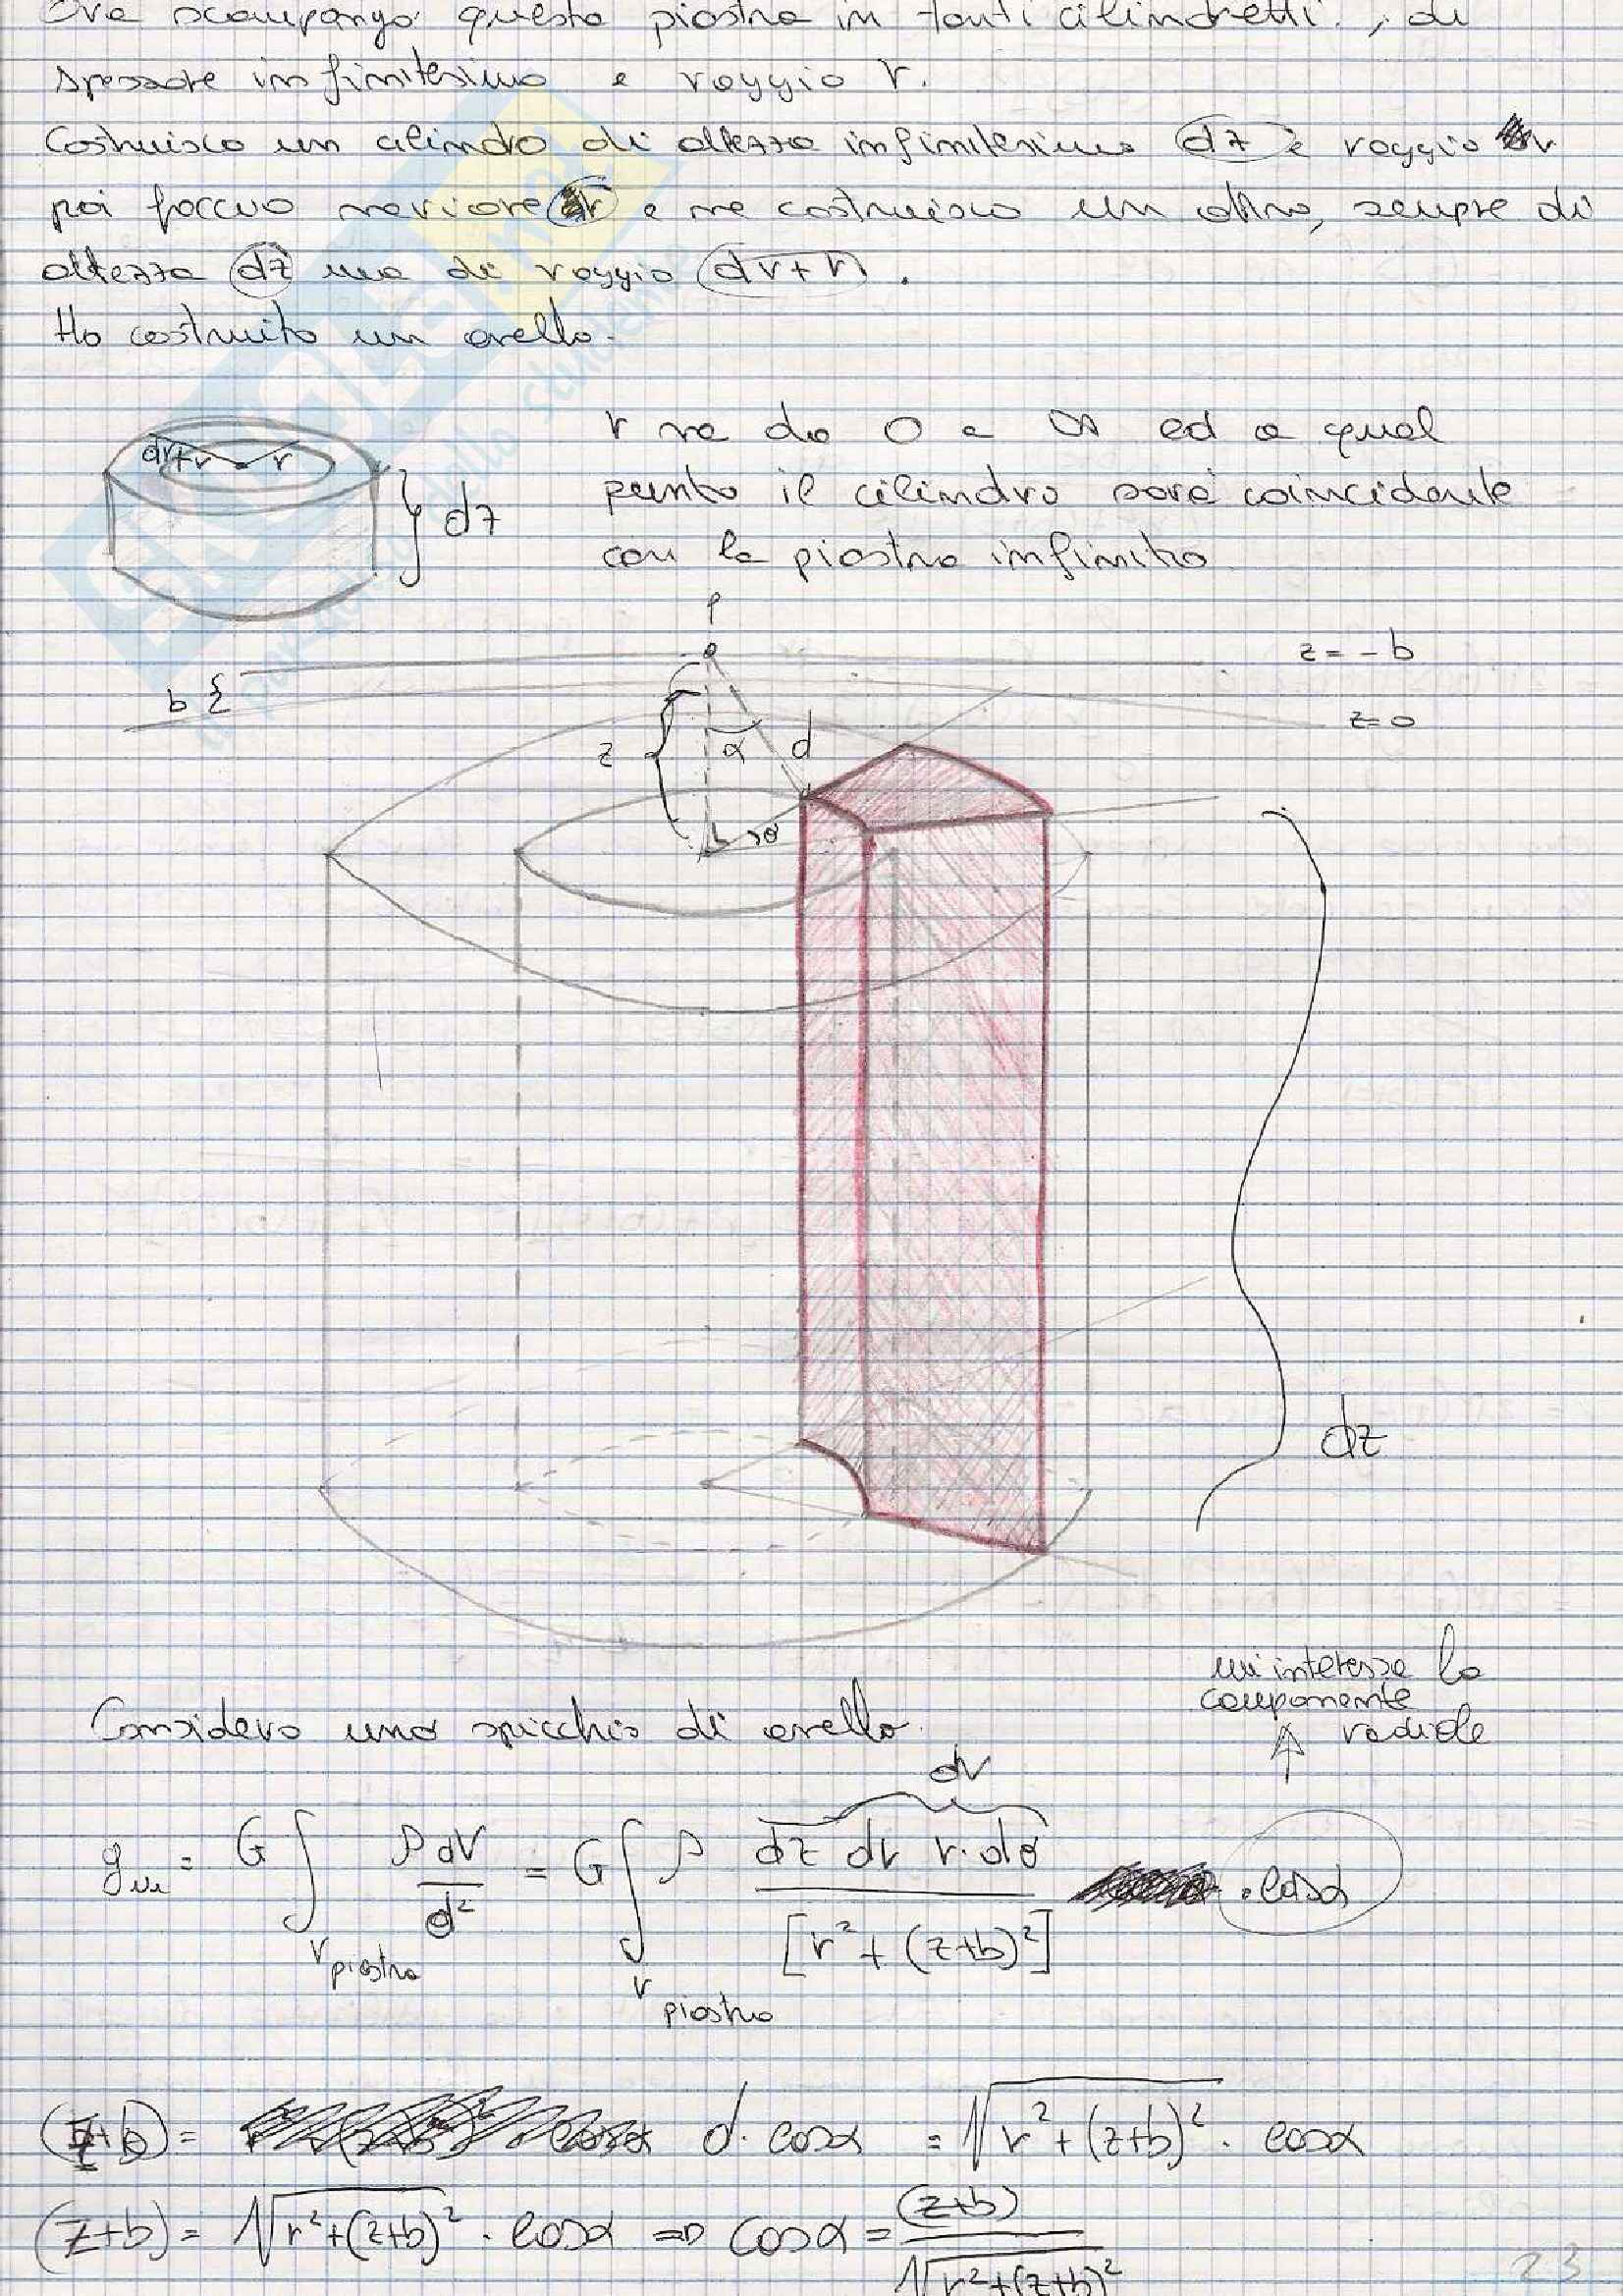 Ora scompongo questa piastra in tanti cilindretti, di
spessore infinitesimo e raggio r.
Costruisco un cilindro di altezza infinitesima dz e raggio r
poi faccio variare r e ne costruisco un altro, sempre di
altezza dz ma di raggio dr+r.
Ho costruito un anello.
r va da 0 a ∞ ed a quel
punto il cilindro sarà coincidente
con la piastra infinita
dr+r
r
dz
P
z = -b
b {
z=0
z
α
d
dz
mi interessa la
componente
radiale
Considero uno spicchio di anello.
dV
g = G ∫ ρ dV / d² = G ∫ ρ dz dr r·dθ / [r² + (z+b)²] · cosα
V piastra
V piastra
(z+b) = d·cosα = √(r² + (z+b)²) · cosα
(z+b) = √(r²+(z+b)²) · cosα ⇒ cosα = (z+b) / √(r²+(z+b)²)
23